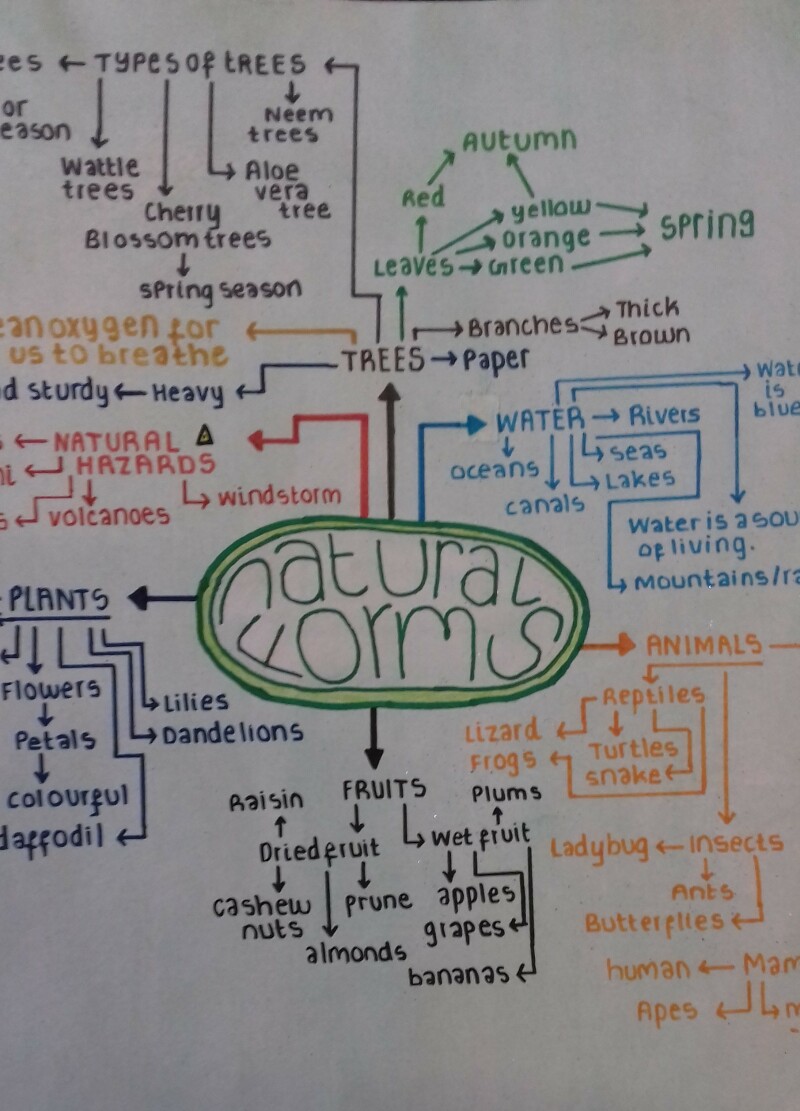 TYPES of TREES
or
Neem
trees
Wattle
trees
Aloe
vera
tree
Cherry
Blossom trees
spring season
AUTUMN
Red
yellow
orange
Green
Leaves
spring
oxygen for
us to breathe
Branches
Thick
Brown
TREES
Paper
sturdy
Heavy
NATURAL
HAZARDS
windstorm
volcanoes
WATER
Rivers
oceans
seas
Lakes
canals
is
blue
Water is a
of living.
Mountains/
natural
forms
PLANTS
Flowers
Petals
colourful
daffodil
Lilies
Dandelions
ANIMALS
Reptiles
Lizard
Frogs
Turtles
snake
Insects
Ladybug
Ants
Butterflies
human
Apes
FRUITS
Raisin
Dried fruit
cashew
nuts
prune
almonds
Plums
wet fruit
apples
grapes
bananas